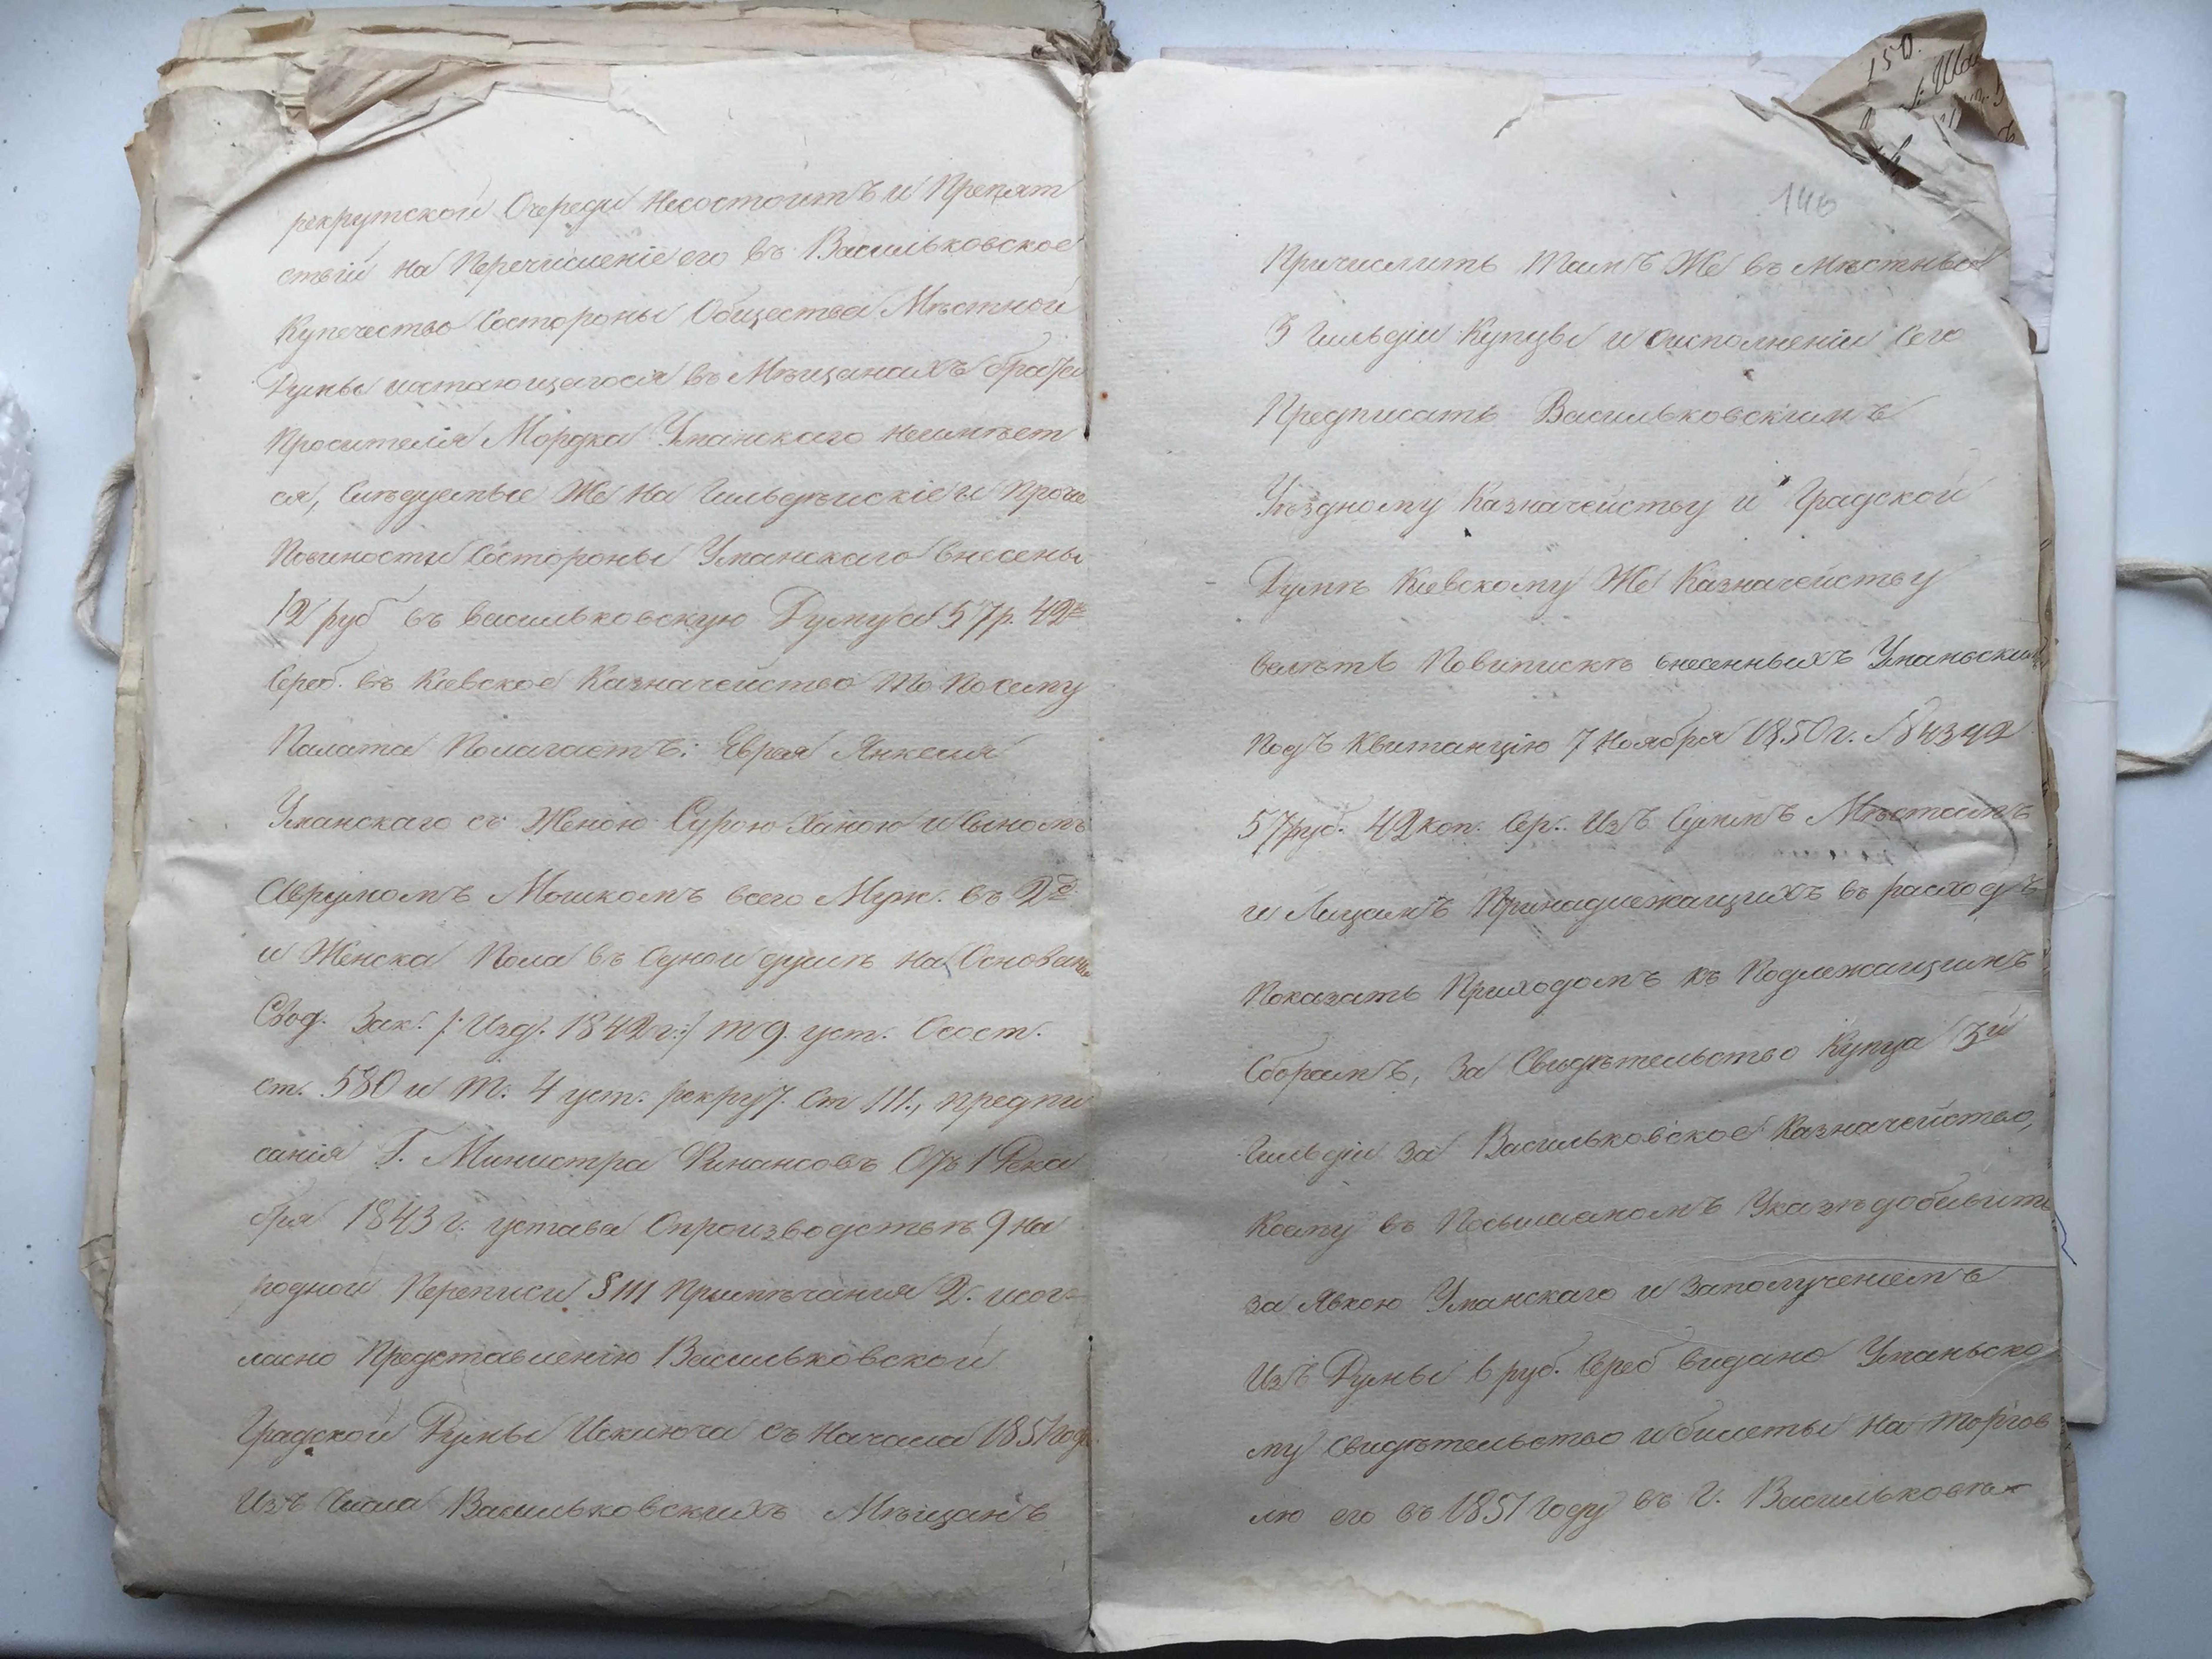 рекрутской Очереди несостоитъ и Препят
ствiй на Перечисленiе его въ Васильковское
Купечество состороны Общества Мѣстной
Думы и остающегося въ Мѣщанахъ брата
Просителя Мордка Уманскаго неимѣет
ся, Слѣдуемые Же на Гильдѣйскiе и Проче
Повиности Состороны Уманскаго внесены
12 руб въ васильковскую Думу а 57 р. 42 к
Сереб. въ Кiевское Казначейство То Посему
Палата Полагаетъ: Еврея Янкеля
Уманскаго съ Женою Сурою Ханою и сыномъ
Аврумомъ Мошкомъ всего Муж. въ 2хъ
и Женска Пола въ Одной душѣ на Основан
Свод. Зак. /: Изд. 1842 г.:/ т 9. уст. Осост.
ст. 580 и Т. 4 уст. рекрут. ст 111., предпи
санiя Г. Министра Финансовъ Отъ 1 Дека
бря 1843 г. устава Опроизводствѣ 9 на
родной Переписи § 111 Примѣчанiя 2. исог
ласно Представленiю Васильковской
Градской Думы Исключа съ Начала 1851 года
Изъ Числа Васильковскихъ Мѣщанъ
150.
146
Причислить Тамъ Же въ Мѣстные
3 гильдiи Купцы и Оисполненiи Сего
Предписать Васильковскимъ
Уѣздному Казначейству и Градской
Думѣ Кiевскому Же Казначейству
велѣть Повыпискѣ внесенныхъ Уманьским
Подъ Квитанцiю 7 Ноября 1850 г. N 4342
57 руб. 42 коп. Сер. Изъ Суммъ Мѣстамъ
и Лицамъ Принадлежащихъ въ расходъ
Показать Приходомъ къ Подлежащимъ
Сборамъ, За Свидѣтельство Купца 3й
Гильдiи За Васильковское Казначейство,
Коему въ Посылаемомъ Указѣ добавить
за Явкою Уманскаго и Заполученiемъ
Изъ Думы 6 руб. Сереб видано Уманьско
му Свидѣтельство и билеты на торгов
лю его въ 1851 Году въ г. Васильковѣ